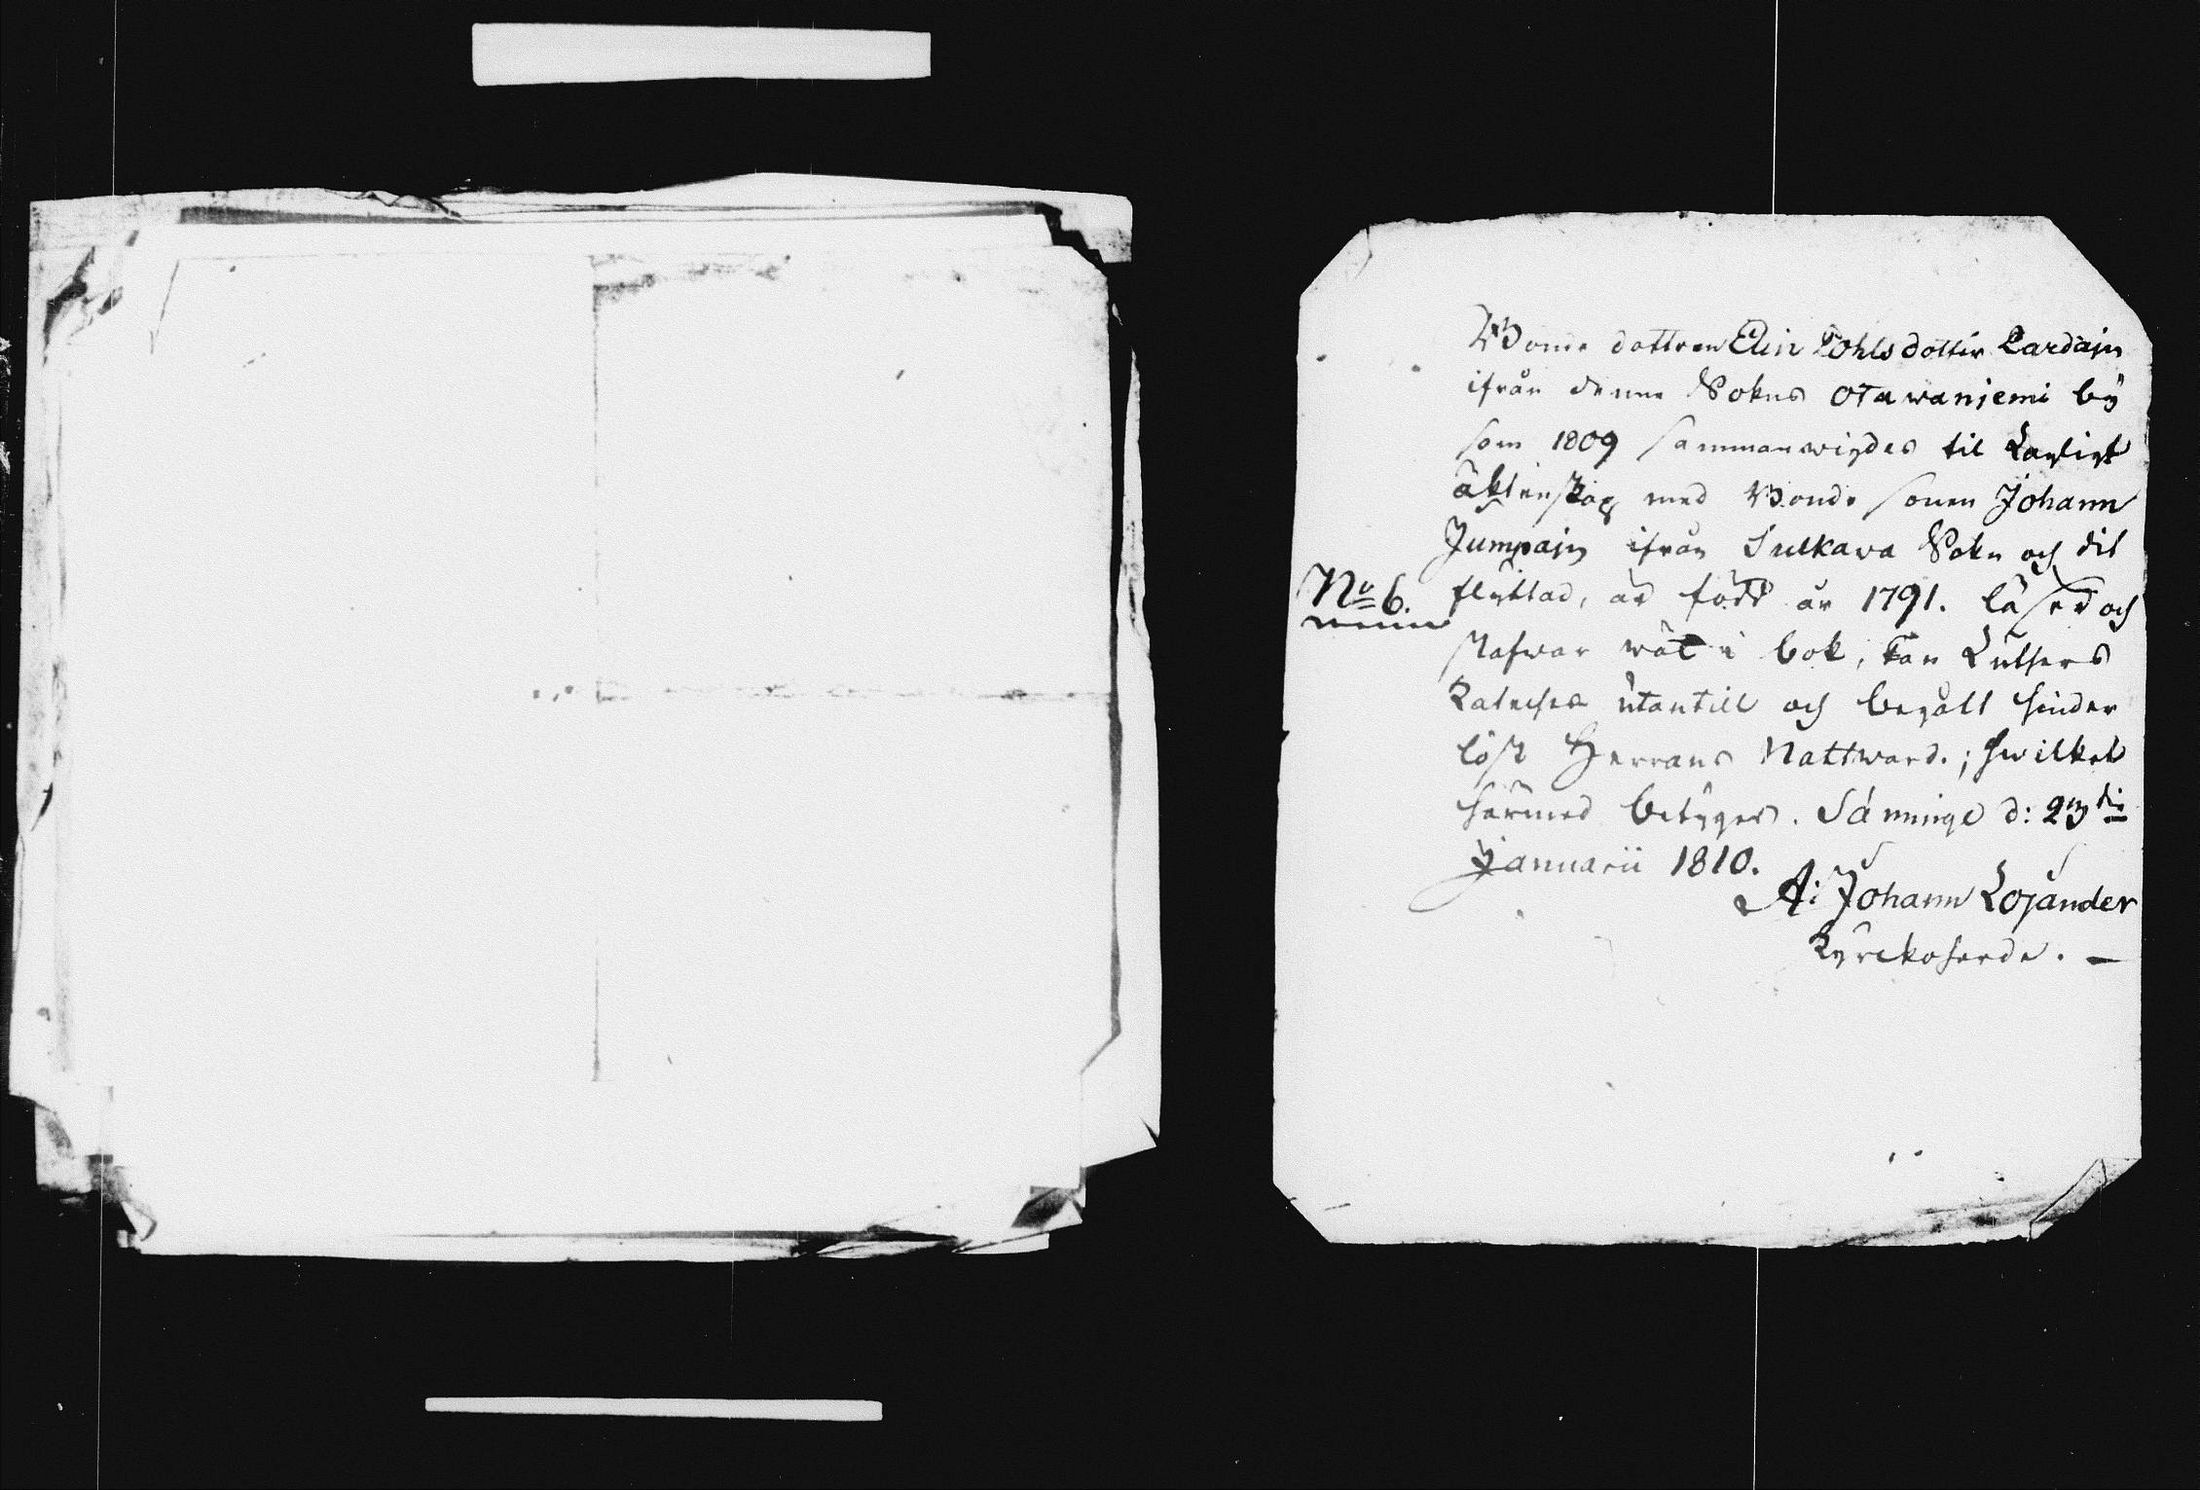 Bonde dottren Elin Pohlsdotter Pardain
ifrån denne Sokns Otawaniemi by
som 1809 sammanwigdes til Lagligt
äktenskap med Bonde sonen Johann
Jumpain ifrån Sulkava Sokn och dit
No 6. flyttad, är född år 1791. läser och
stafwar wäl i bok, kan Luthers
Kateches utantill och begått hinder
löst Herrans Nattward.; hwilket
härmed betyges. Säminge d: 23die
Januarii 1810.
A: Johann Lojander
Kyrckoherde. —